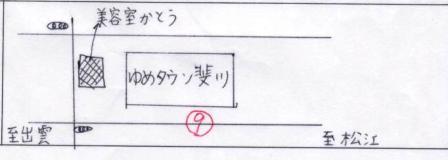 美容室かとう
ゆめタウン斐川
9
至出雲
至松江